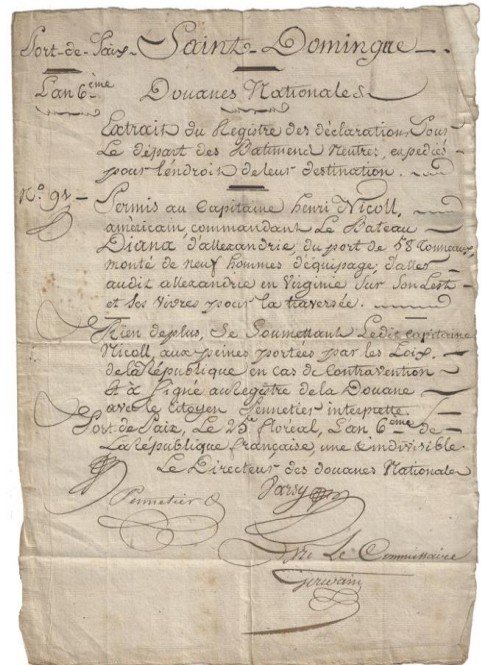 Port-de-Paix. Saint-Domingue.
L'an 6ème Douanes Nationales
Extrait du Registre des déclarations, Pour
Le départ des Batimens Neutres, expédiés
pour l'endroit de leur destination.
No. 94 Permis au Capitaine henri Nicoll,
américain, commandant Le Bateau
Diana d'allexandrie, du port de 58 Tonneaux,
monté de neuf hommes d'équipage, d'aller
audit allexandrie en Virginie sur son Lest
et ses vivres pour la traversée.
Rien de plus, Se Soumettant Ledit Capitaine
Nicoll, aux peines portées par les Loix
de la République en cas de Contravention
Et à Signé au Registre de la Douane
avec le citoyen Pennetier interprette.
Port-de-Paix, Le 25 floréal, L'an 6ème de
La République française, une & indivisible.
Le Directeur des douanes Nationales
Pennetier Parsy
Le Commissaire
Gervain